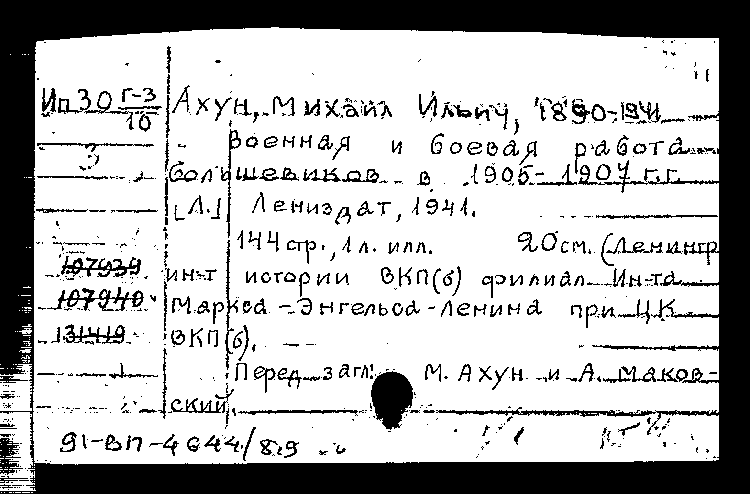 Ип30 Г-3/10 Ахун, Михаил Ильич, 1890-1941
3 Военная и боевая работа
большевиков в 1905-1907 г.г.
[Л.] Лениздат, 1941.
144 стр., 1 л. илл. 20 см. (Ленингр
107939 ин-т истории ВКП(б) филиал Ин-та
107940 Маркса-Энгельса-Ленина при ЦК
131419 ВКП(б). —
Перед загл: М. Ахун и А. Маков-
ский.
91-ВП-4644/89